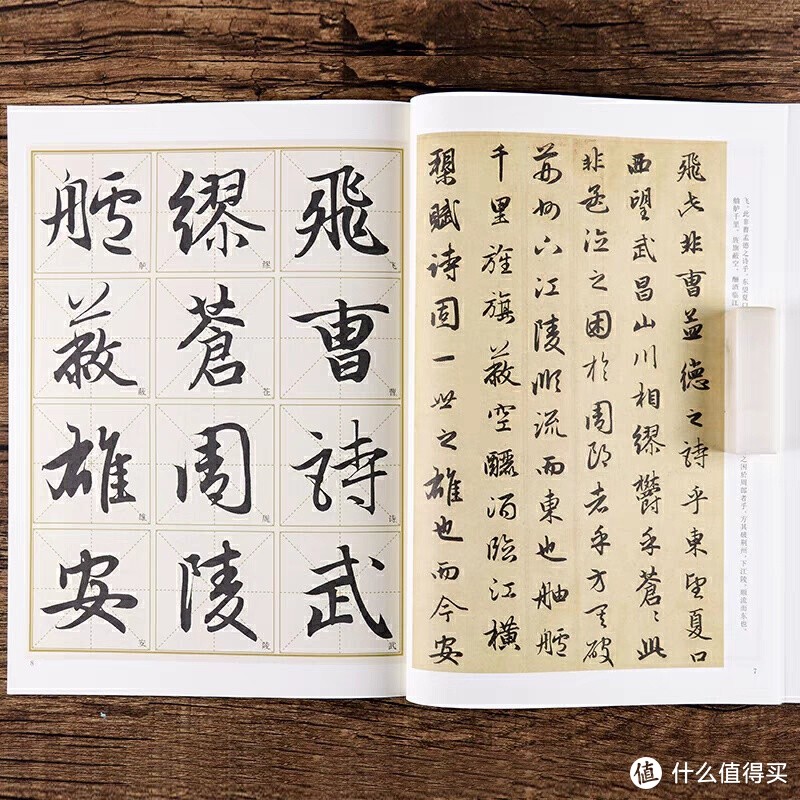 飞。此非曹孟德之诗乎。东望夏口
之困於周郎者乎。方其破荆州，下江陵，顺流而东也，
舳舻千里，旌旗蔽空，酾酒临江
飛此非曹孟德之詩乎東望夏口
西望武昌山川相繆鬱乎蒼〻此
非孟德之困於周郎者乎方其破
荊州下江陵順流而東也舳艫
千里旌旗蔽空釃酒臨江橫
槊賦詩固一世之雄也而今安
7
飛曹詩武
飞曹诗武
繆蒼周陵
缪苍周陵
艫蔽雄安
舻蔽雄安
8
值 什么值得买